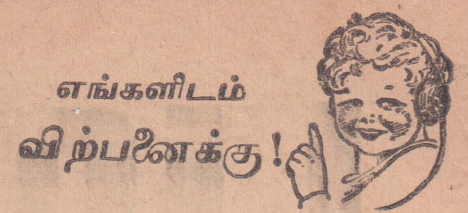 எங்களிடம்
விற்பனைக்கு!